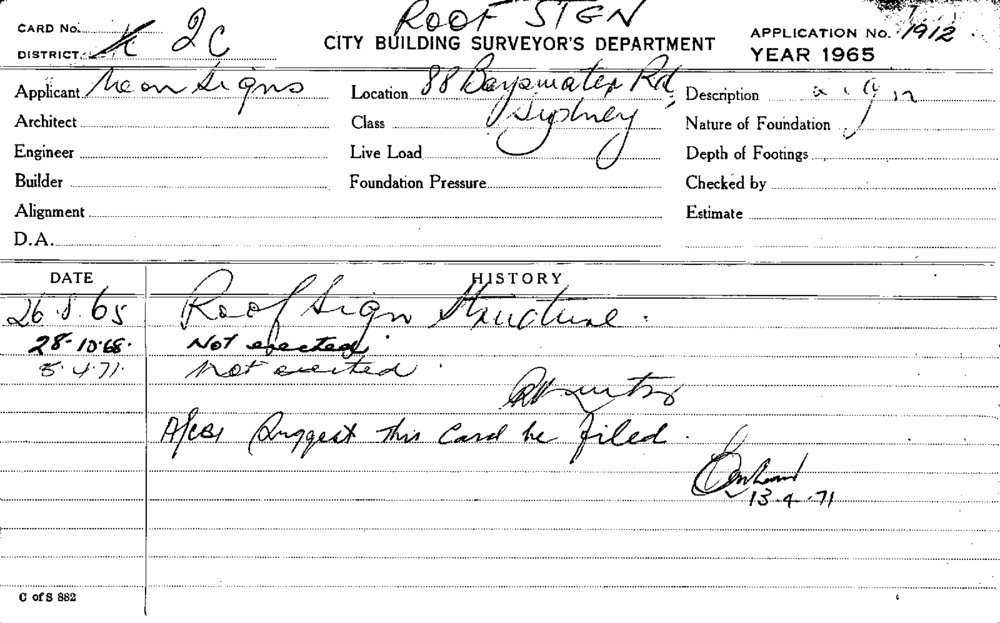 ROOF SIGN
CARD No. 2C
CITY BUILDING SURVEYOR'S DEPARTMENT
APPLICATION No. 1912
DISTRICT
YEAR 1965
Applicant Neon Signs
Location 88 Bayswater Rd
Sydney
Description sign
Architect
Class
Nature of Foundation
Engineer
Live Load
Depth of Footings
Builder
Foundation Pressure
Checked by
Alignment
Estimate
D.A.
DATE HISTORY
26.8.65 Roof Sign Structure.
28.10.68. Not erected.
5.4.71. Not erected.
Suggest this Card be filed.
13.4.71
C of S 882